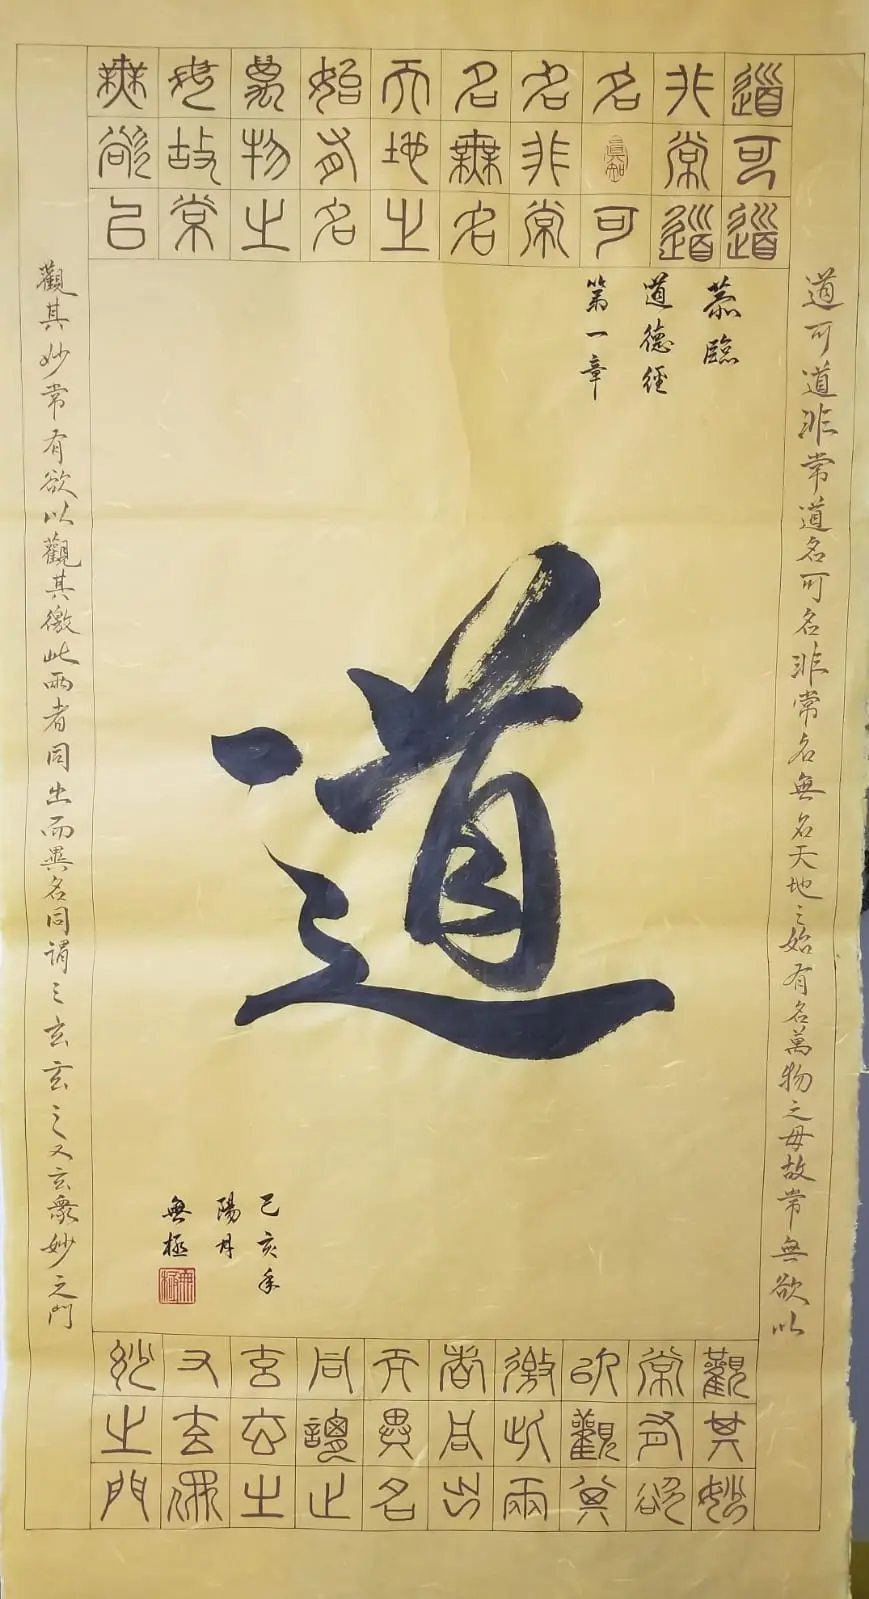 道可道
非常道
名真知可
名非常
名無名
天地之
始有名
萬物之
母故常
無欲以
道可道非常道名可名非常名無名天地之始有名萬物之母故常無欲以
恭臨
道德經
第一章
道
己亥年
陽月
無極
無極
觀其妙常有欲以觀其徼此兩者同出而異名同謂之玄玄之又玄衆妙之門
觀其妙
常有欲
以觀其
徼此兩
者同出
而異名
同謂之
玄玄之
又玄眾
妙之門